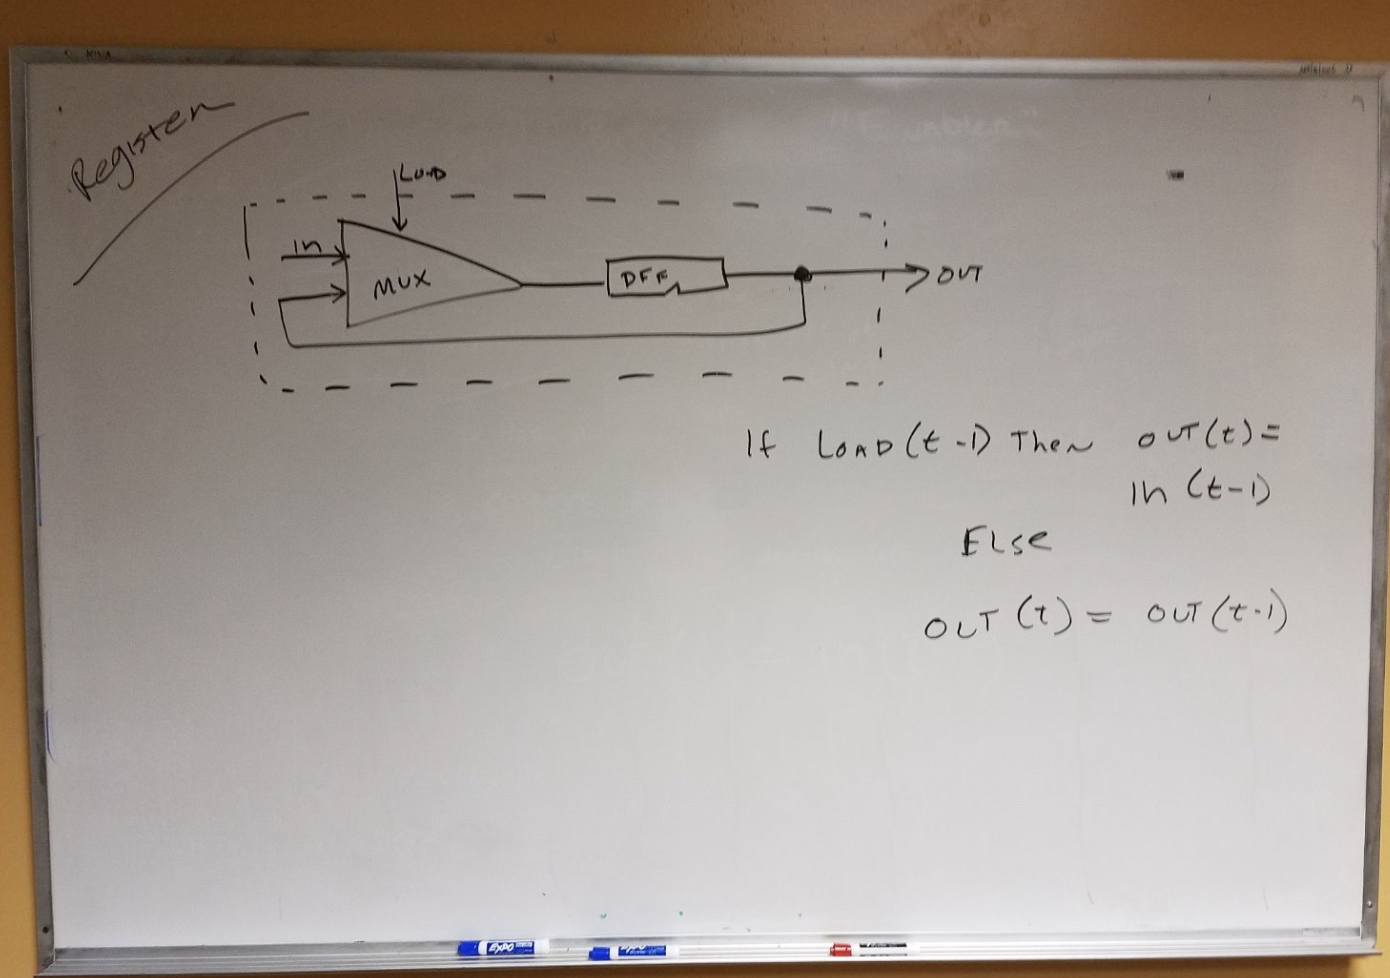 Register
LOAD
in
MUX
DFF
OUT
If LOAD(t-1) Then OUT(t)=
in (t-1)
ELse
OUT (t) = OUT(t-1)
EXPO